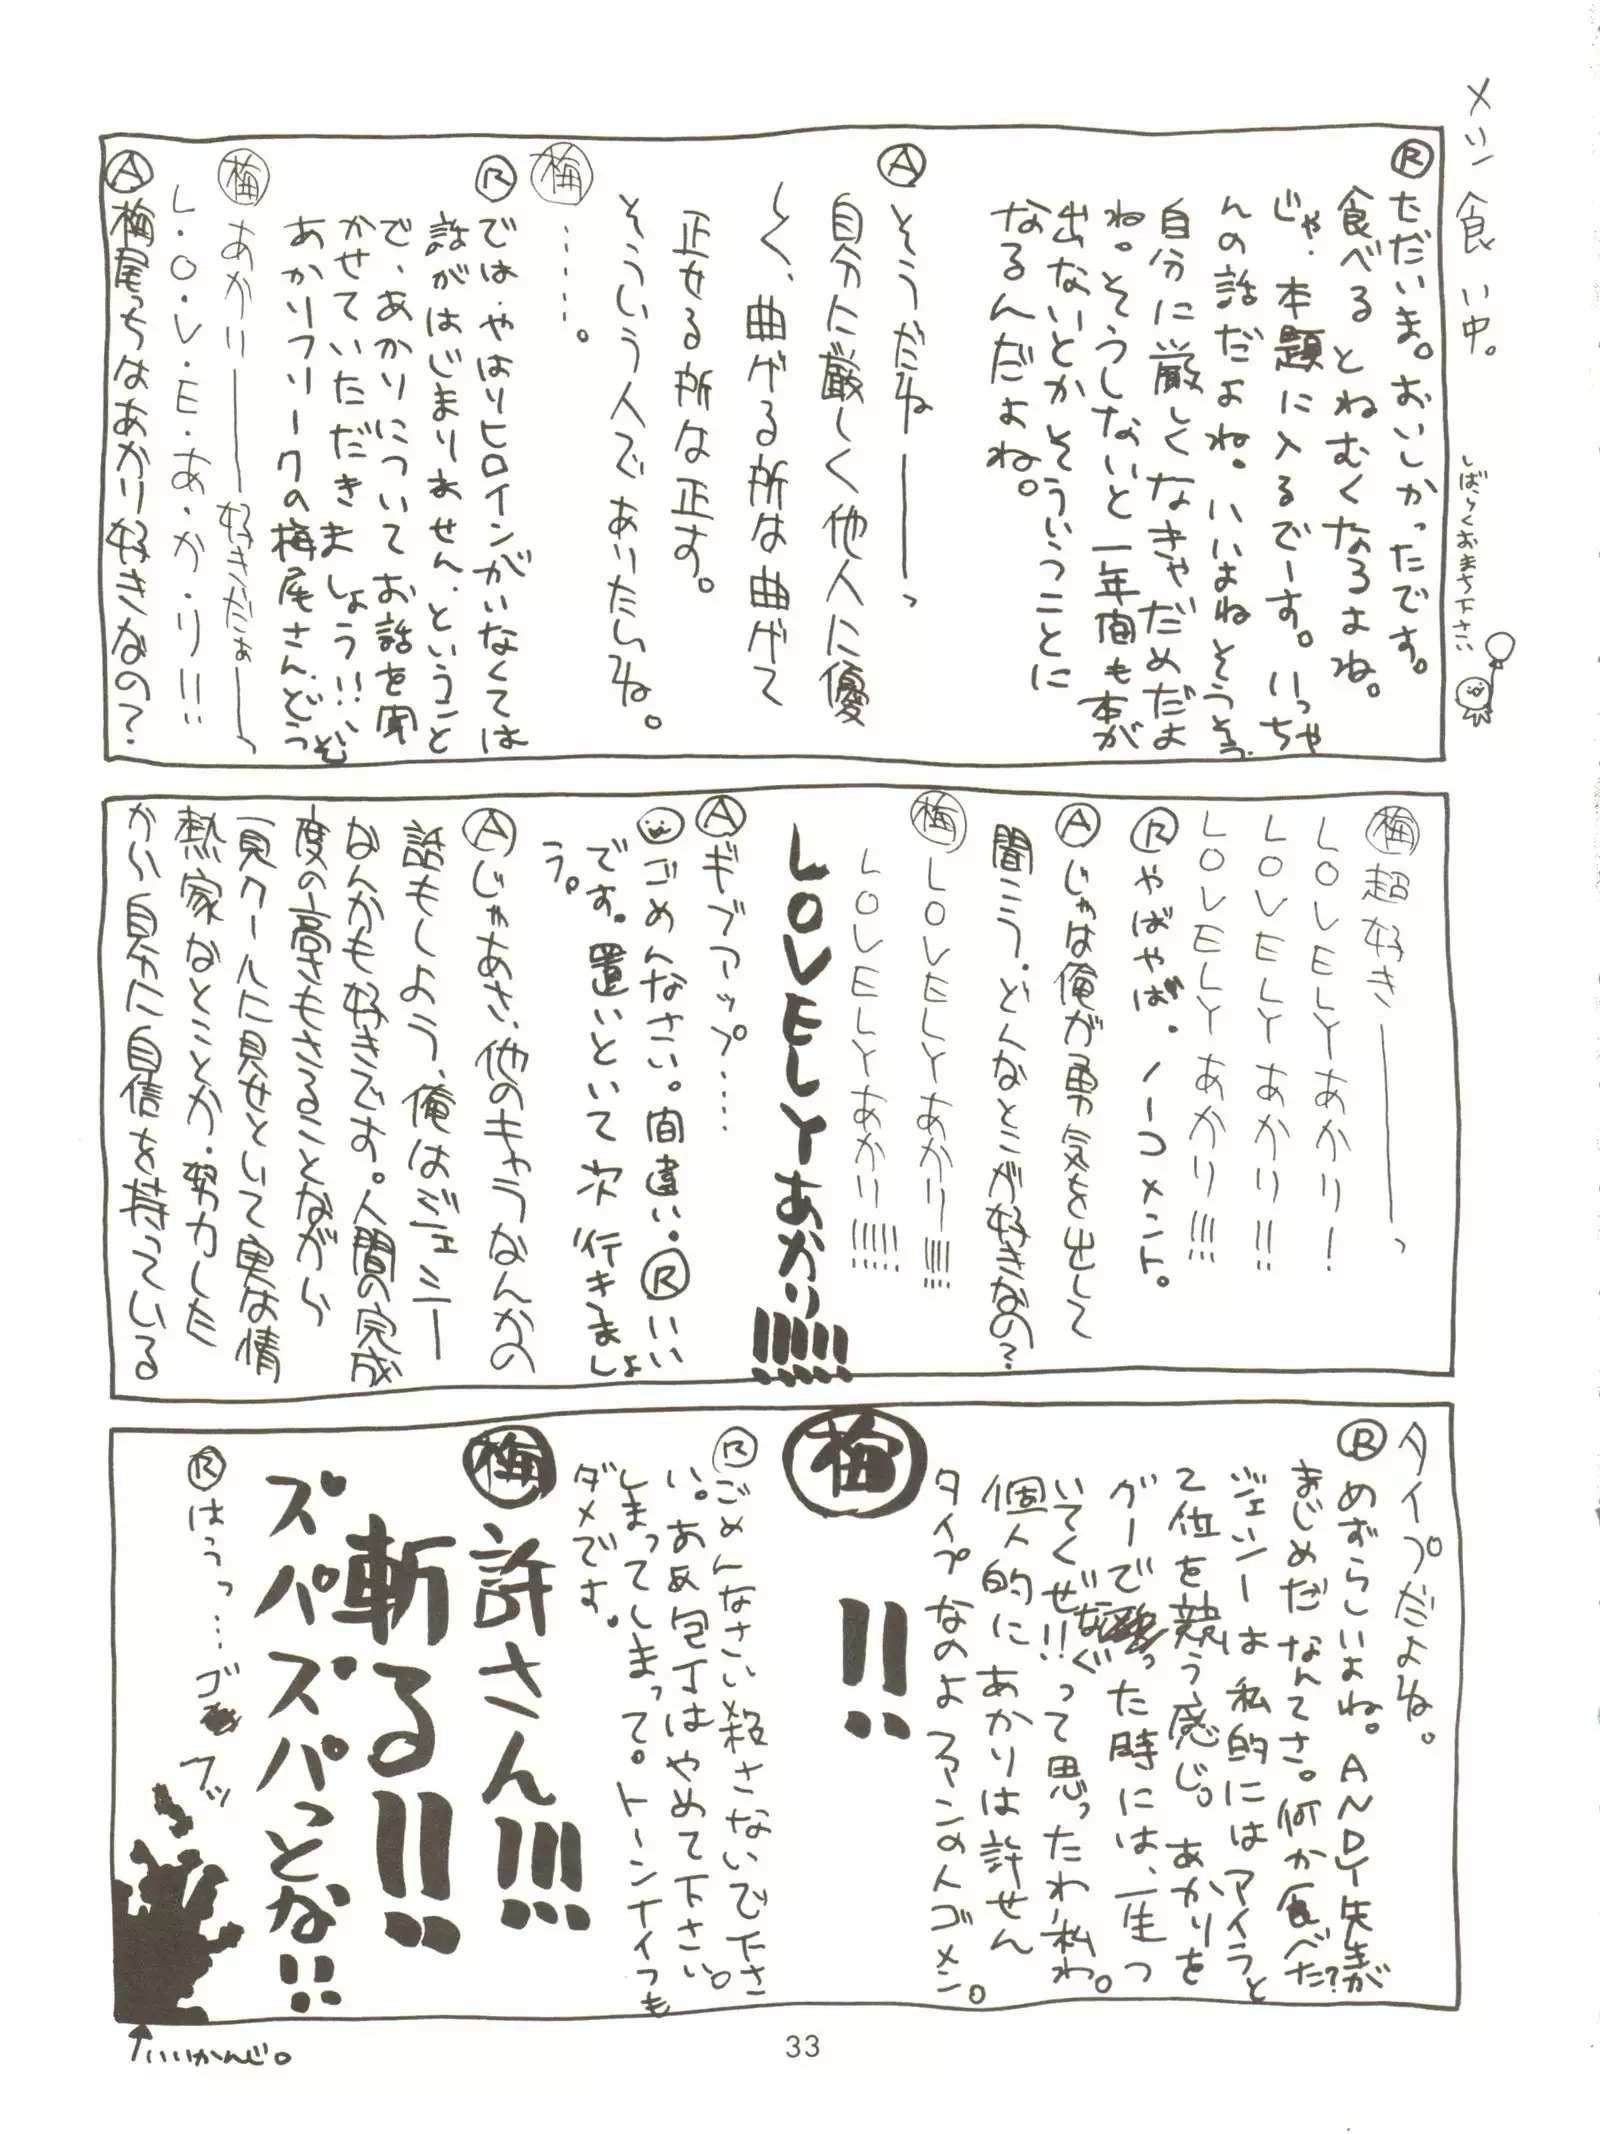 メシ食い中。
しばらくおまち下さい
Ⓡただいま。おいしかったです。
食べるとねむくなるよね。
じゃ、本題に入るでーす。いっちゃ
んの話だよね。いいよねそうそう。
自分に厳しくなきゃだめだよ
ね。そうしないと一年間も本が
出ないとかそういうことに
なるんだよね。
Ⓐそうだねーーーっ
自分に厳しく他人に優
しく、曲げる所は曲げて
正なる所は正す。
そういう人でありたいね。
㊍梅……。
Ⓡでは、やはりヒロインがいなくては
話がはじまりませんということ
で、あかりについてお話を聞
かせていただきましょう!!、
あかりフリークの梅尾さんどうぞ
梅 あかりーーー好きだぁーーっ
L・O・V・E・あ・か・り!!
Ⓐ梅尾っちはあかり好きなの?
梅 超好きーーーっ
LOVELYあかり!
LOVELYあかり!!
LOVELYあかり!!!
Ⓡやばやば。ノーコメント。
Ⓐじゃは俺が勇気を出して
聞こう、どんなとこが好きなの?
梅 LOVELYあかり!!!!
LOVELYあかり!!!!!
LOVELYあかり!!!!!!
Ⓐギブアップ……
ごめんなさい。間違い。Ⓡいい
です。置いといて次行きましょ
う。
Ⓐじゃあさ、他のキャラなんかの
話もしよう、俺はジェシー
なんかも好きです。人間の完成
度の高さもさることながら
一見クールに見せといて実は情
熱家なとことか、努力した
から自分に自信を持っている
タイプだよね。
Ⓡめずらしいよね。ANDY先生が
まじめだなんてさ。何か食べた?
ジェシーは私的にはアイラと
て位を競う感じ。あかりを
グーでなぐった時には、一生つ
いてくぜ!!って思ったわ私わ。
個人的にあかりは許せん
タイプなのよファンの人ゴメン。
梅 !!
Ⓡごめんなさい殺さないで下さ
い。ああ包丁はやめて下さい。
しまってしまって。トーンナイフも
ダメです。
梅 許さん!!!
斬る!!
ズバズバズバっとな!!
Ⓡはうっ…ゴフッ
↑いいかんじ。
33